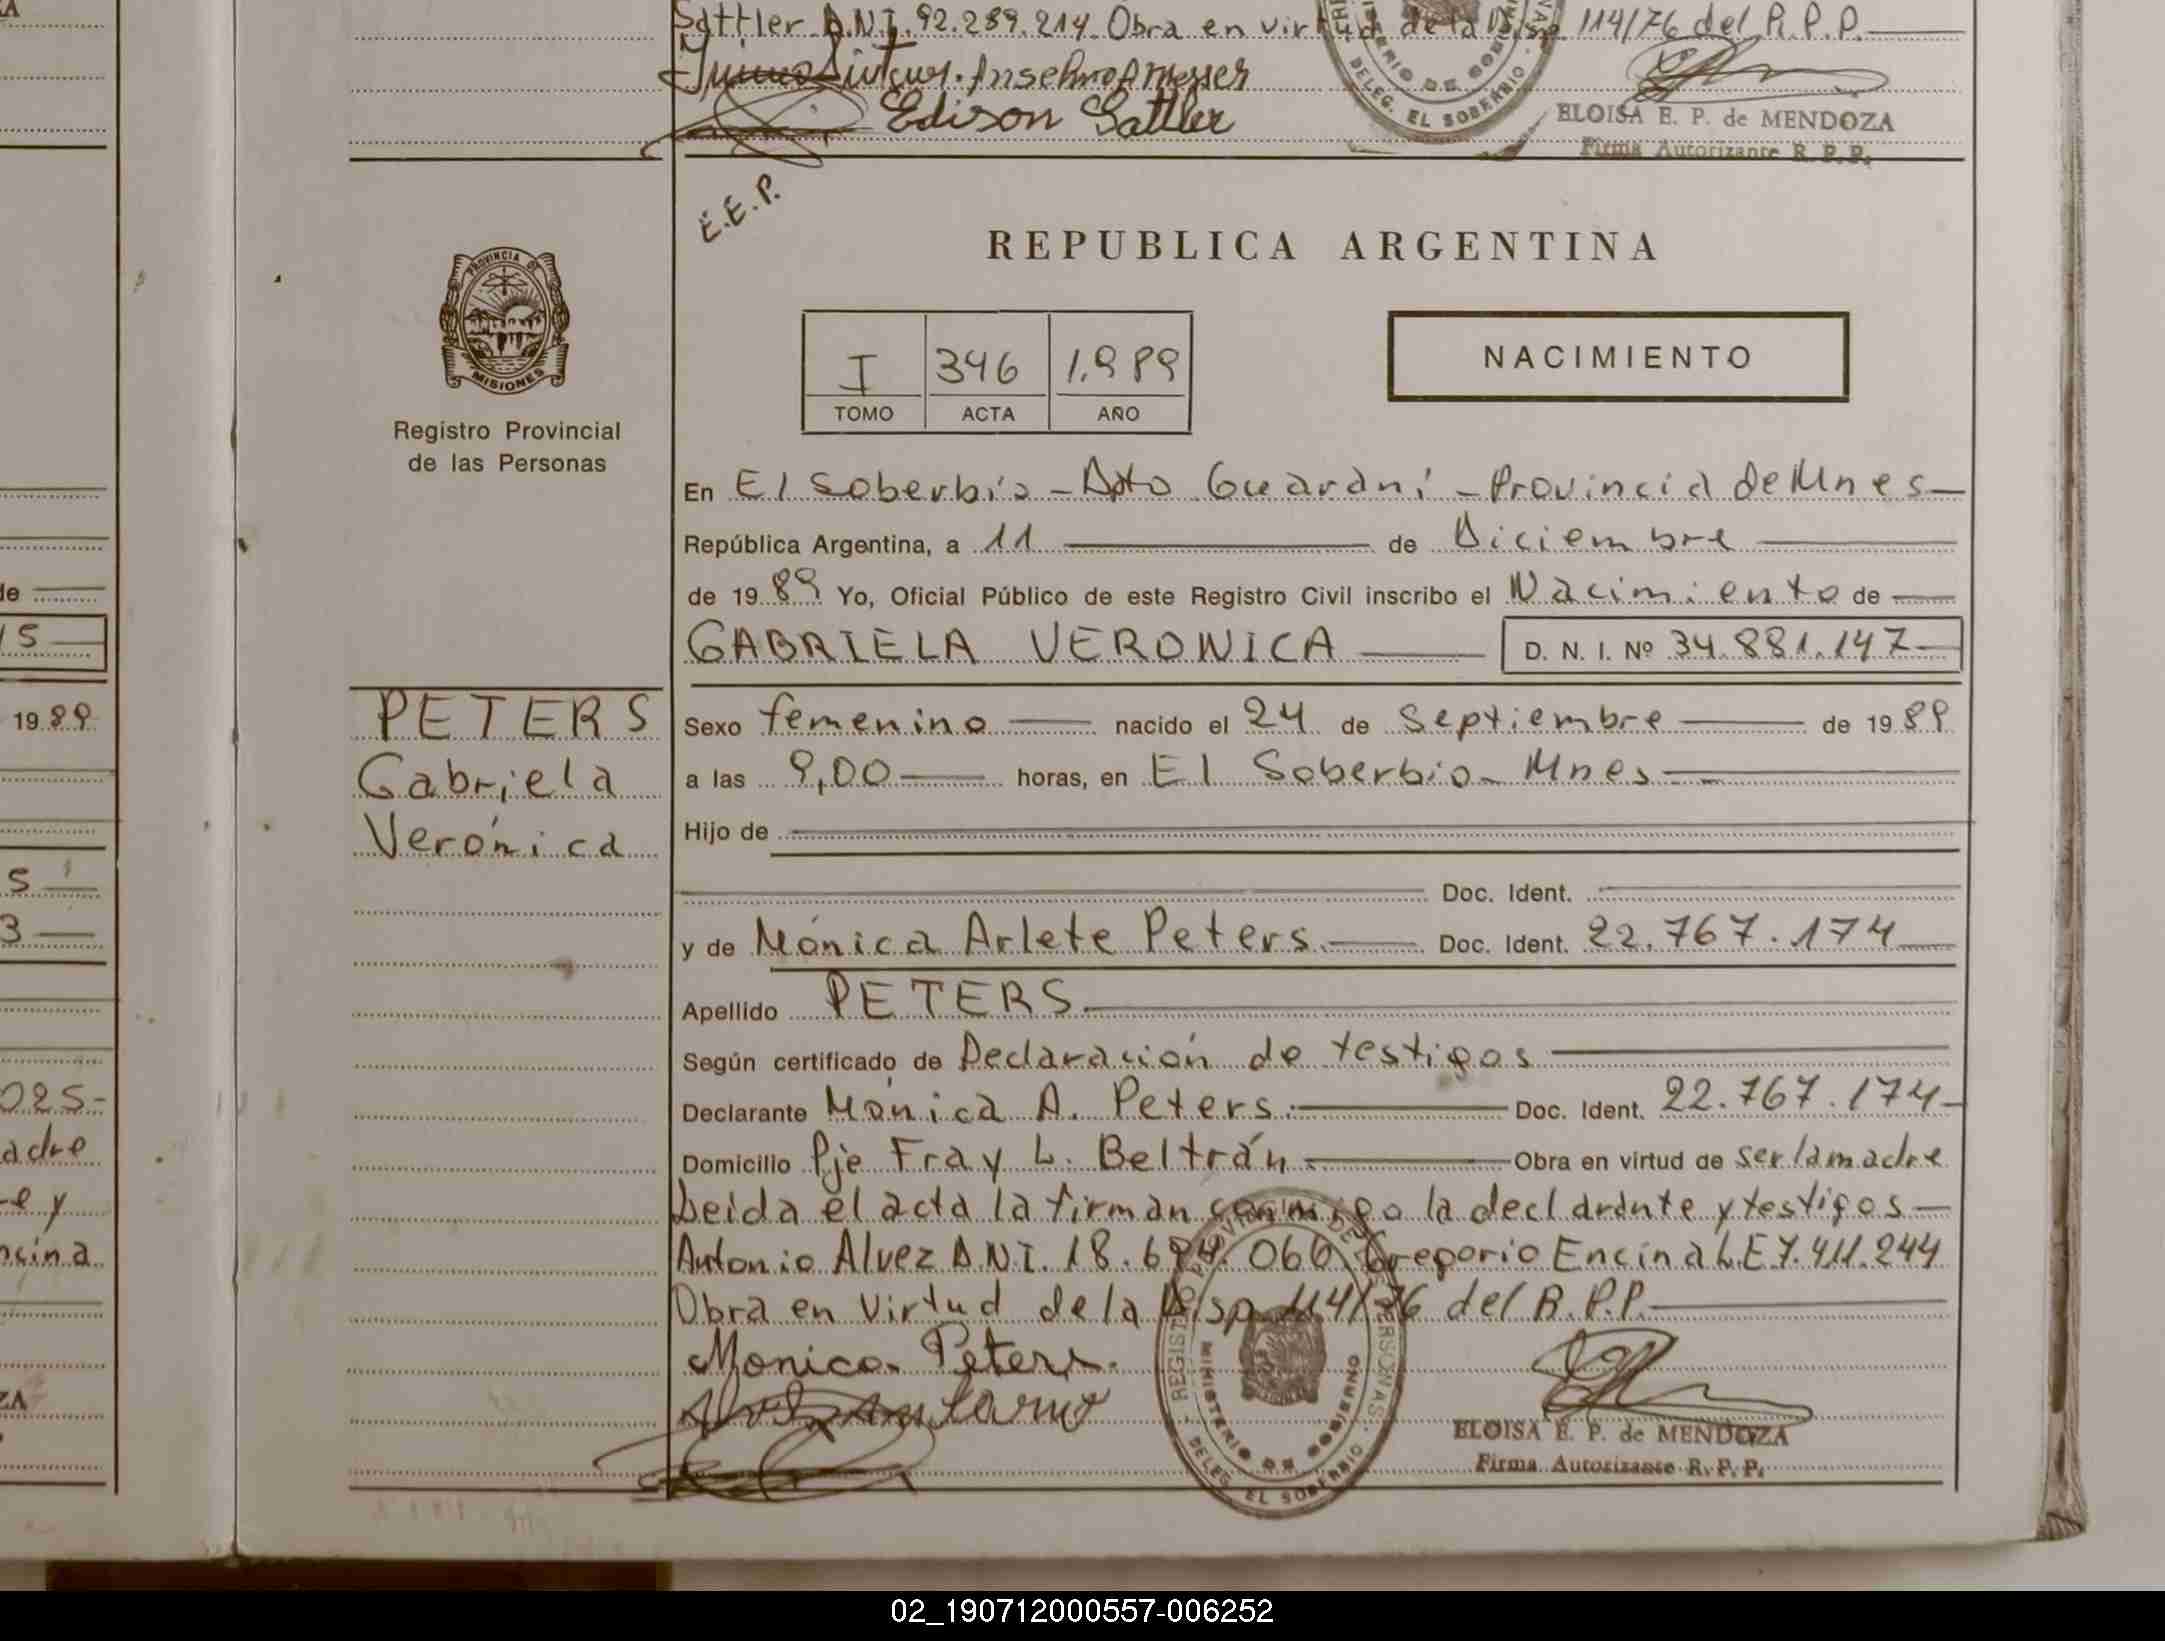 Sattler D.N.I. 92.289.214. Obra en virtud de la Disp 114/76 del R.P.P.
Anselmo A Messer
Edison Sattler
DELEG. EL SOBERBIO
ELOISA E. P. de MENDOZA
Firma Autorizante R. P. P.
E.E.P.
REPUBLICA ARGENTINA
PROVINCIA DE
MISIONES
Registro Provincial
de las Personas
I 346 1.989
TOMO ACTA AÑO
NACIMIENTO
En El Soberbio - Dpto Guaraní - Provincia de Mnes
República Argentina, a 11 de Diciembre
de 1989 Yo, Oficial Público de este Registro Civil inscribo el Nacimiento de
GABRIELA VERONICA D. N. I. Nº 34.881.147
PETERS
Gabriela
Verónica
Sexo femenino nacido el 24 de Septiembre de 1989
a las 9,00 horas, en El Soberbio - Mnes
Hijo de
Doc. Ident.
y de Mónica Arlete Peters. Doc. Ident. 22.767.174
Apellido PETERS
Según certificado de Declaración de testigos
Declarante Mónica A. Peters. Doc. Ident. 22.767.174
Domicilio Pje Fray L. Beltrán Obra en virtud de ser la madre
Leida el acta la firman conmigo la declarante y testigos
Antonio Alvez D.N.I. 18.694.066 Gregorio Encina L.E 7.411.244
Obra en virtud de la Disp 114/76 del R.P.P.
Monica Peters.
REGISTRO PROVINCIAL DE LAS PERSONAS
MINISTERIO DE GOBIERNO
DELEG. EL SOBERBIO
ELOISA E. P. de MENDOZA
Firma Autorizante R. P. P.
de
15
1989
5
3
025-
adre
e y
ncina
ZA
02_190712000557-006252